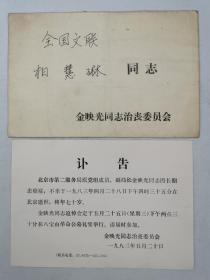 全国文联
相慧琳 同志
金映光同志治丧委员会
讣告
北京市第二服务局原党组成员、副局长金映光同志因长期患癌症，不幸于一九八三年四月二十八日下午四时三十五分在北京逝世，终年七十岁。
金映光同志追悼会定于五月二十五日（星期三）下午两点三十分在八宝山革命公墓礼堂举行。请届时参加。
金映光同志治丧委员会
一九八三年五月二十日